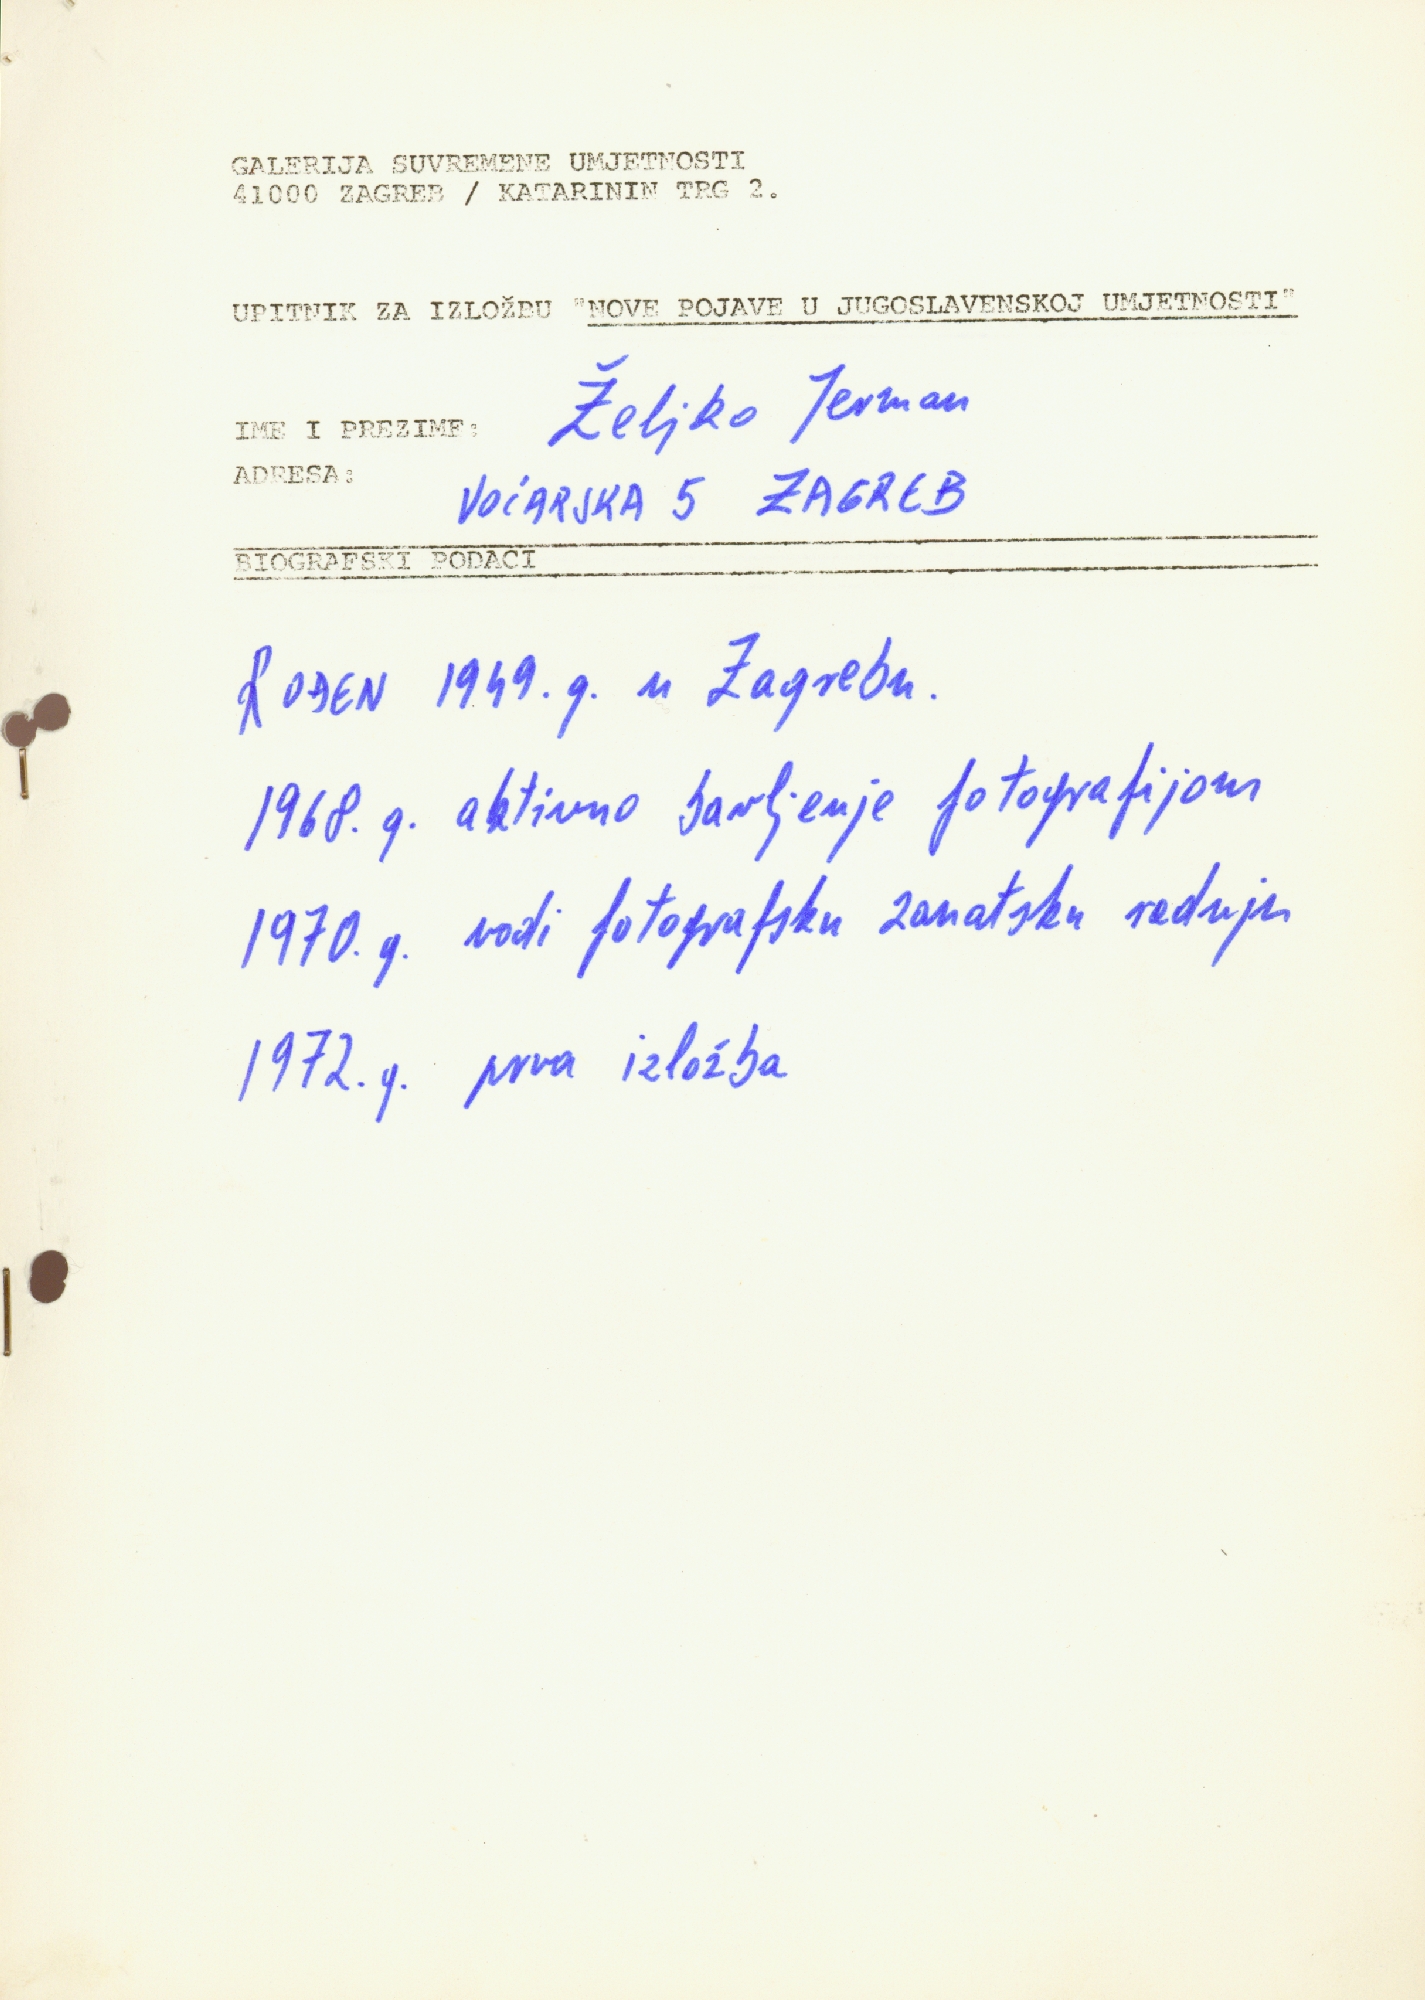 GALERIJA SUVREMENE UMJETNOSTI
41000 ZAGREB / KATARININ TRG 2.
UPITNIK ZA IZLOŽBU "NOVE POJAVE U JUGOSLAVENSKOJ UMJETNOSTI"
IME I PREZIME: Željko Jerman
ADRESA: VOĆARSKA 5 ZAGREB
BIOGRAFSKI PODACI
ROĐEN 1949. g. u Zagrebu.
1968. g. aktivno bavljenje fotografijom
1970. g. vodi fotografsku zanatsku radnju
1972. g. prva izložba